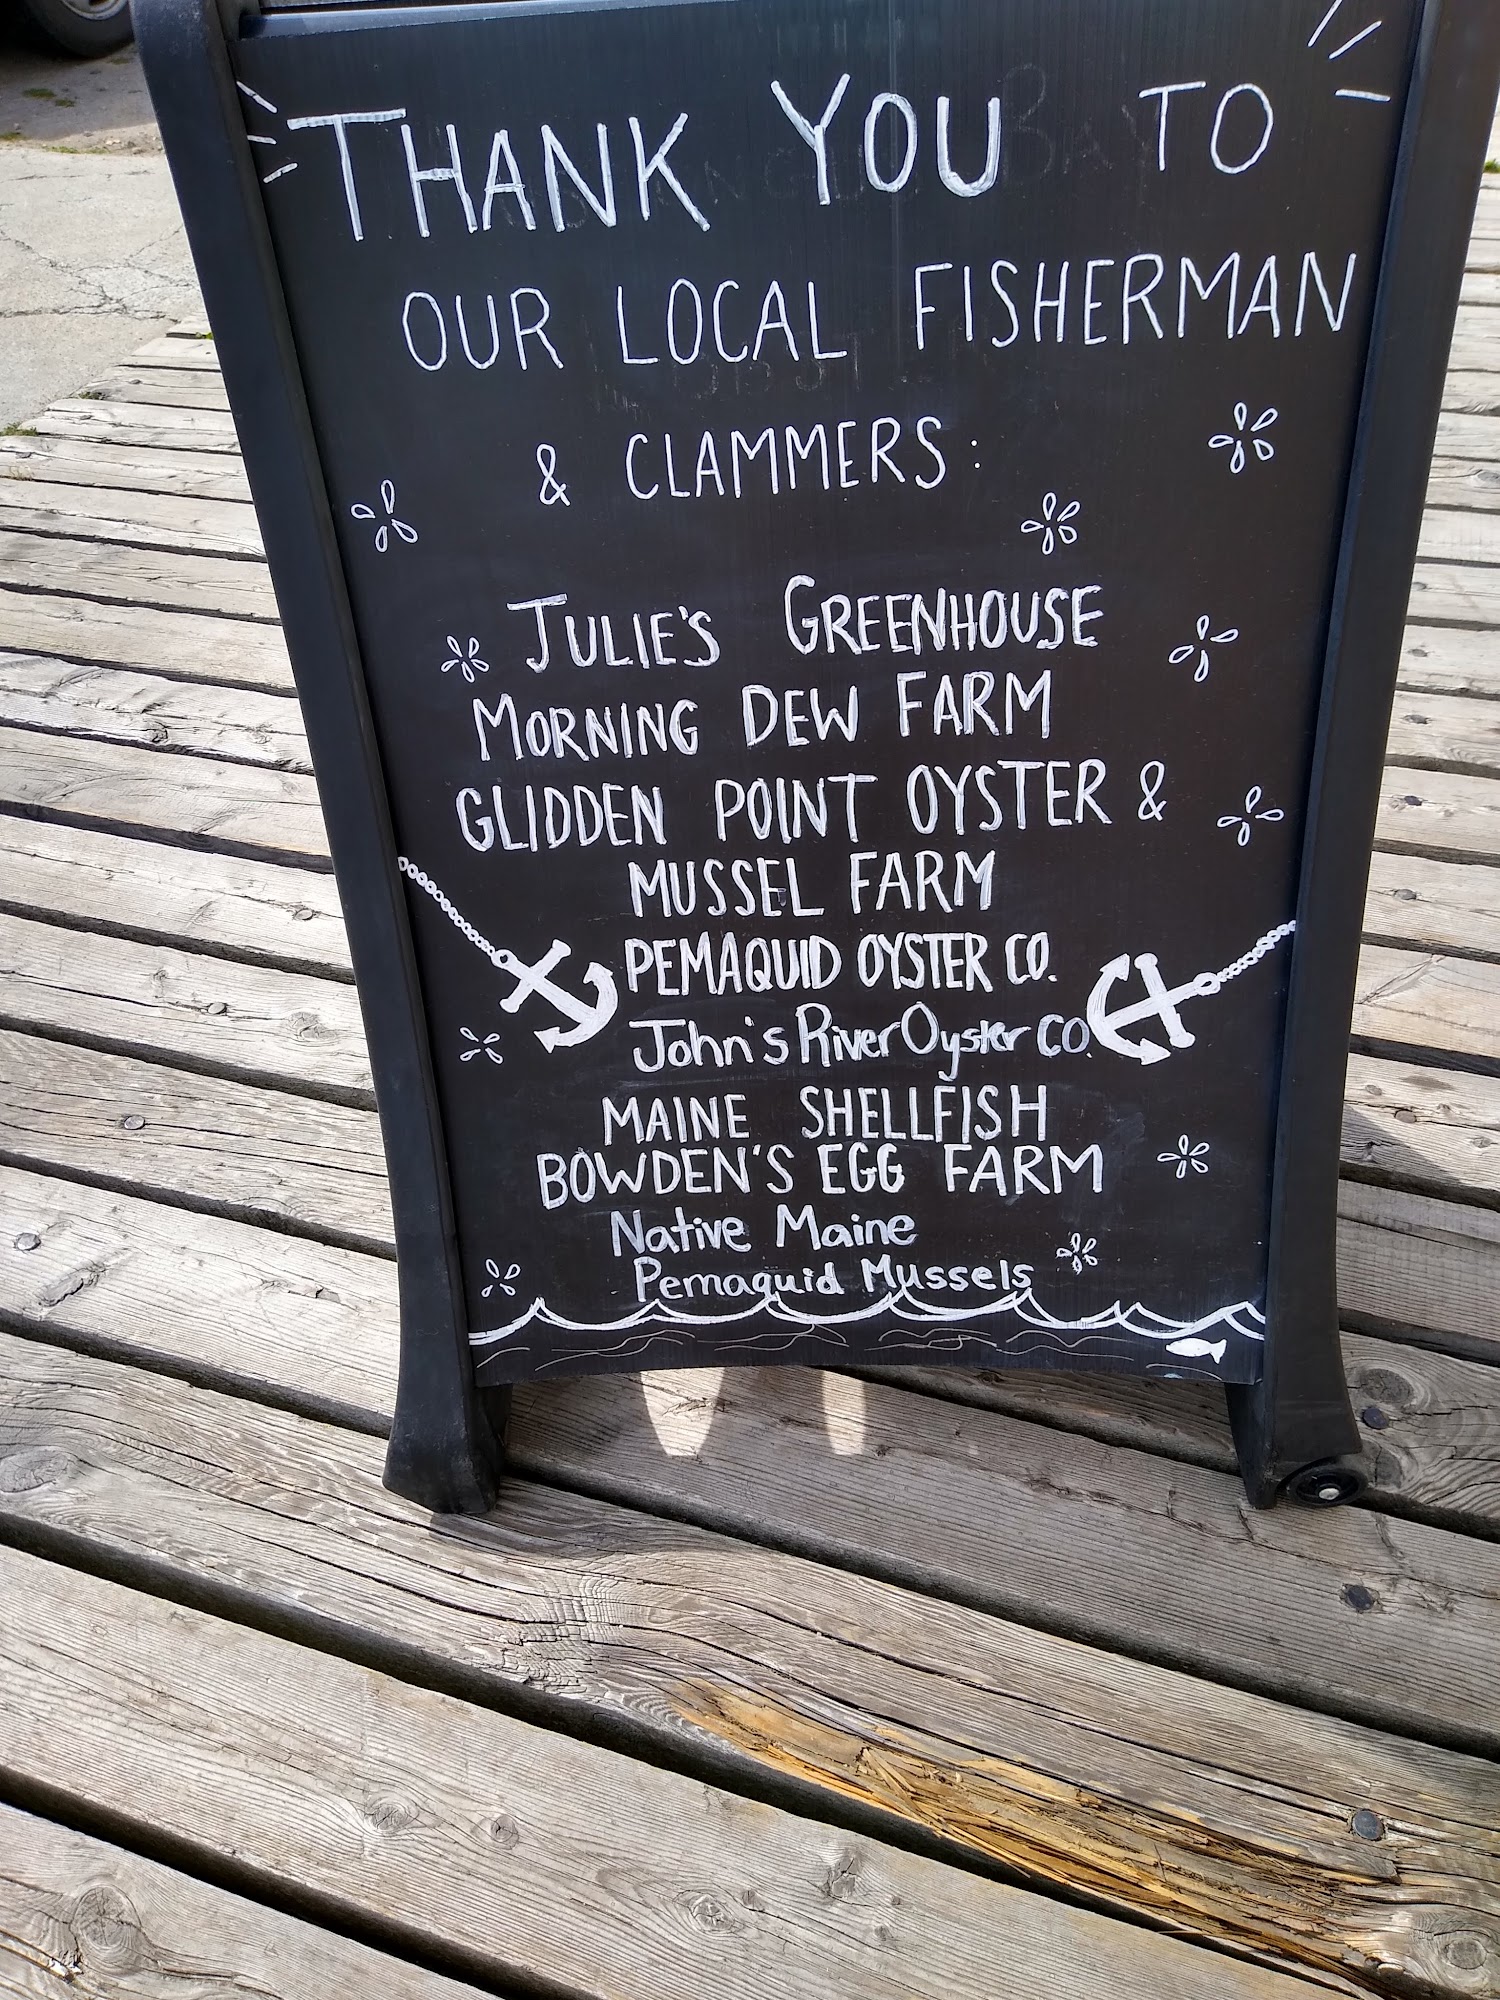 THANK YOU TO
OUR LOCAL FISHERMAN
& CLAMMERS:
JULIE'S GREENHOUSE
MORNING DEW FARM
GLIDDEN POINT OYSTER &
MUSSEL FARM
PEMAQUID OYSTER CO.
John's River Oyster CO.
MAINE SHELLFISH
BOWDEN'S EGG FARM
Native Maine
Pemaquid Mussels